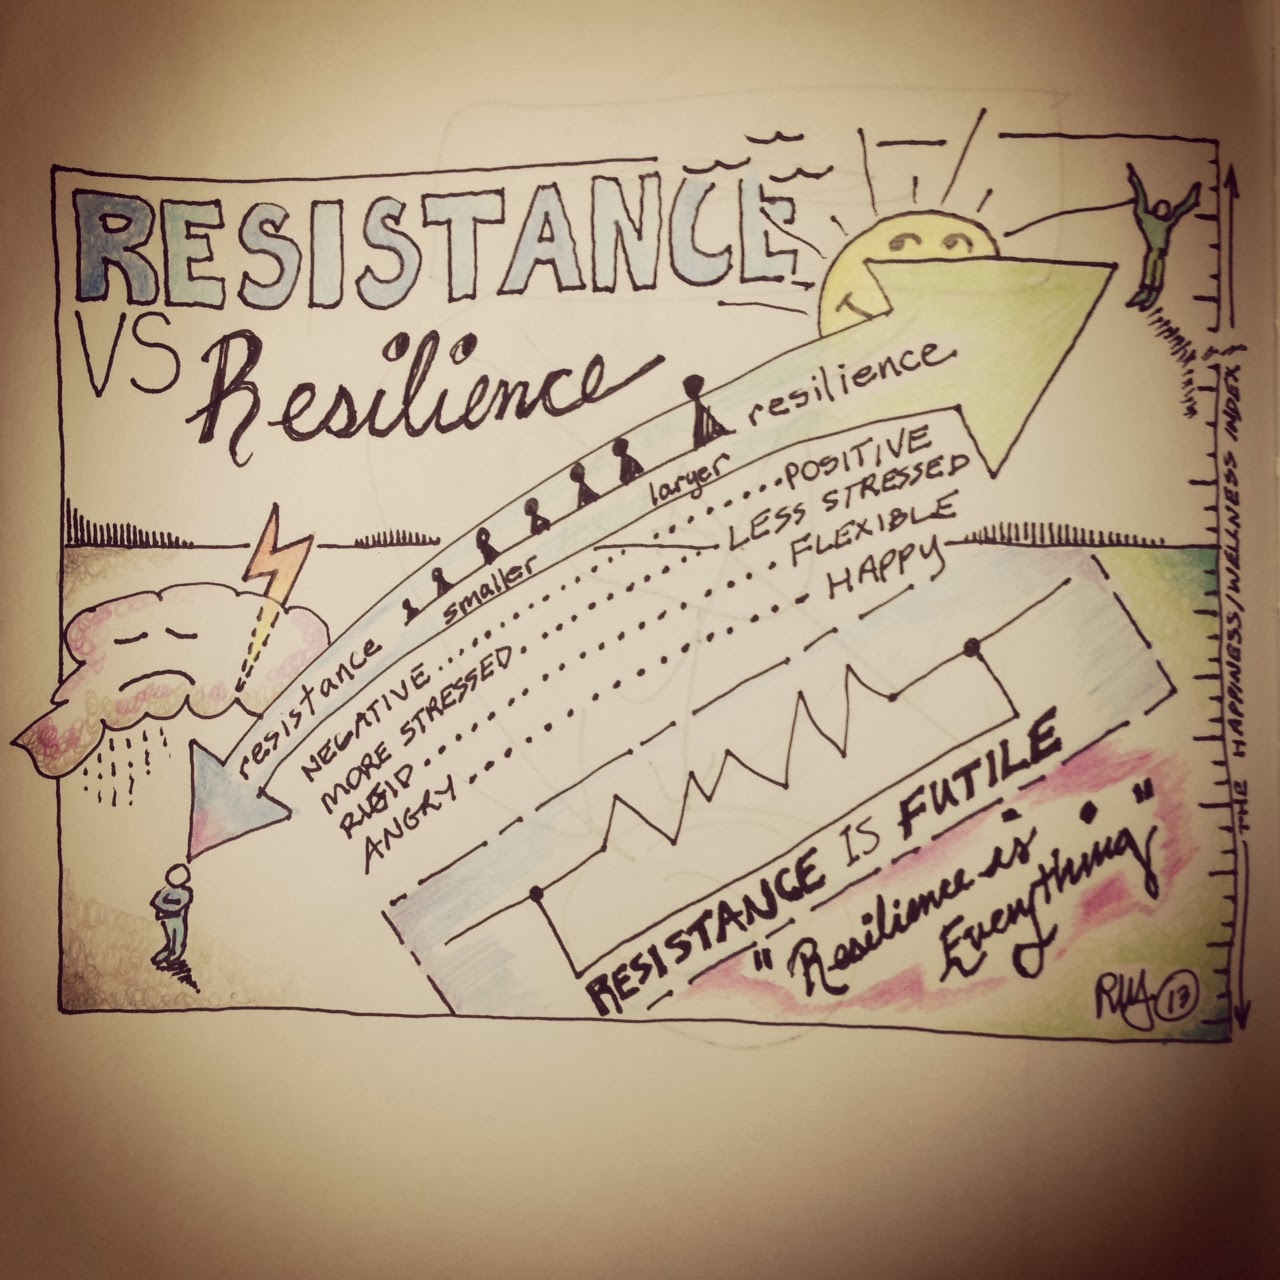 RESISTANCE
VS
Resilience
resistance
smaller
larger
resilience
NEGATIVE..........POSITIVE
MORE STRESSED..........LESS STRESSED
RIGID..........FLEXIBLE
ANGRY..........HAPPY
RESISTANCE IS FUTILE
"Resilience is
Everything"
THE HAPPINESS/WELLNESS INDEX
13